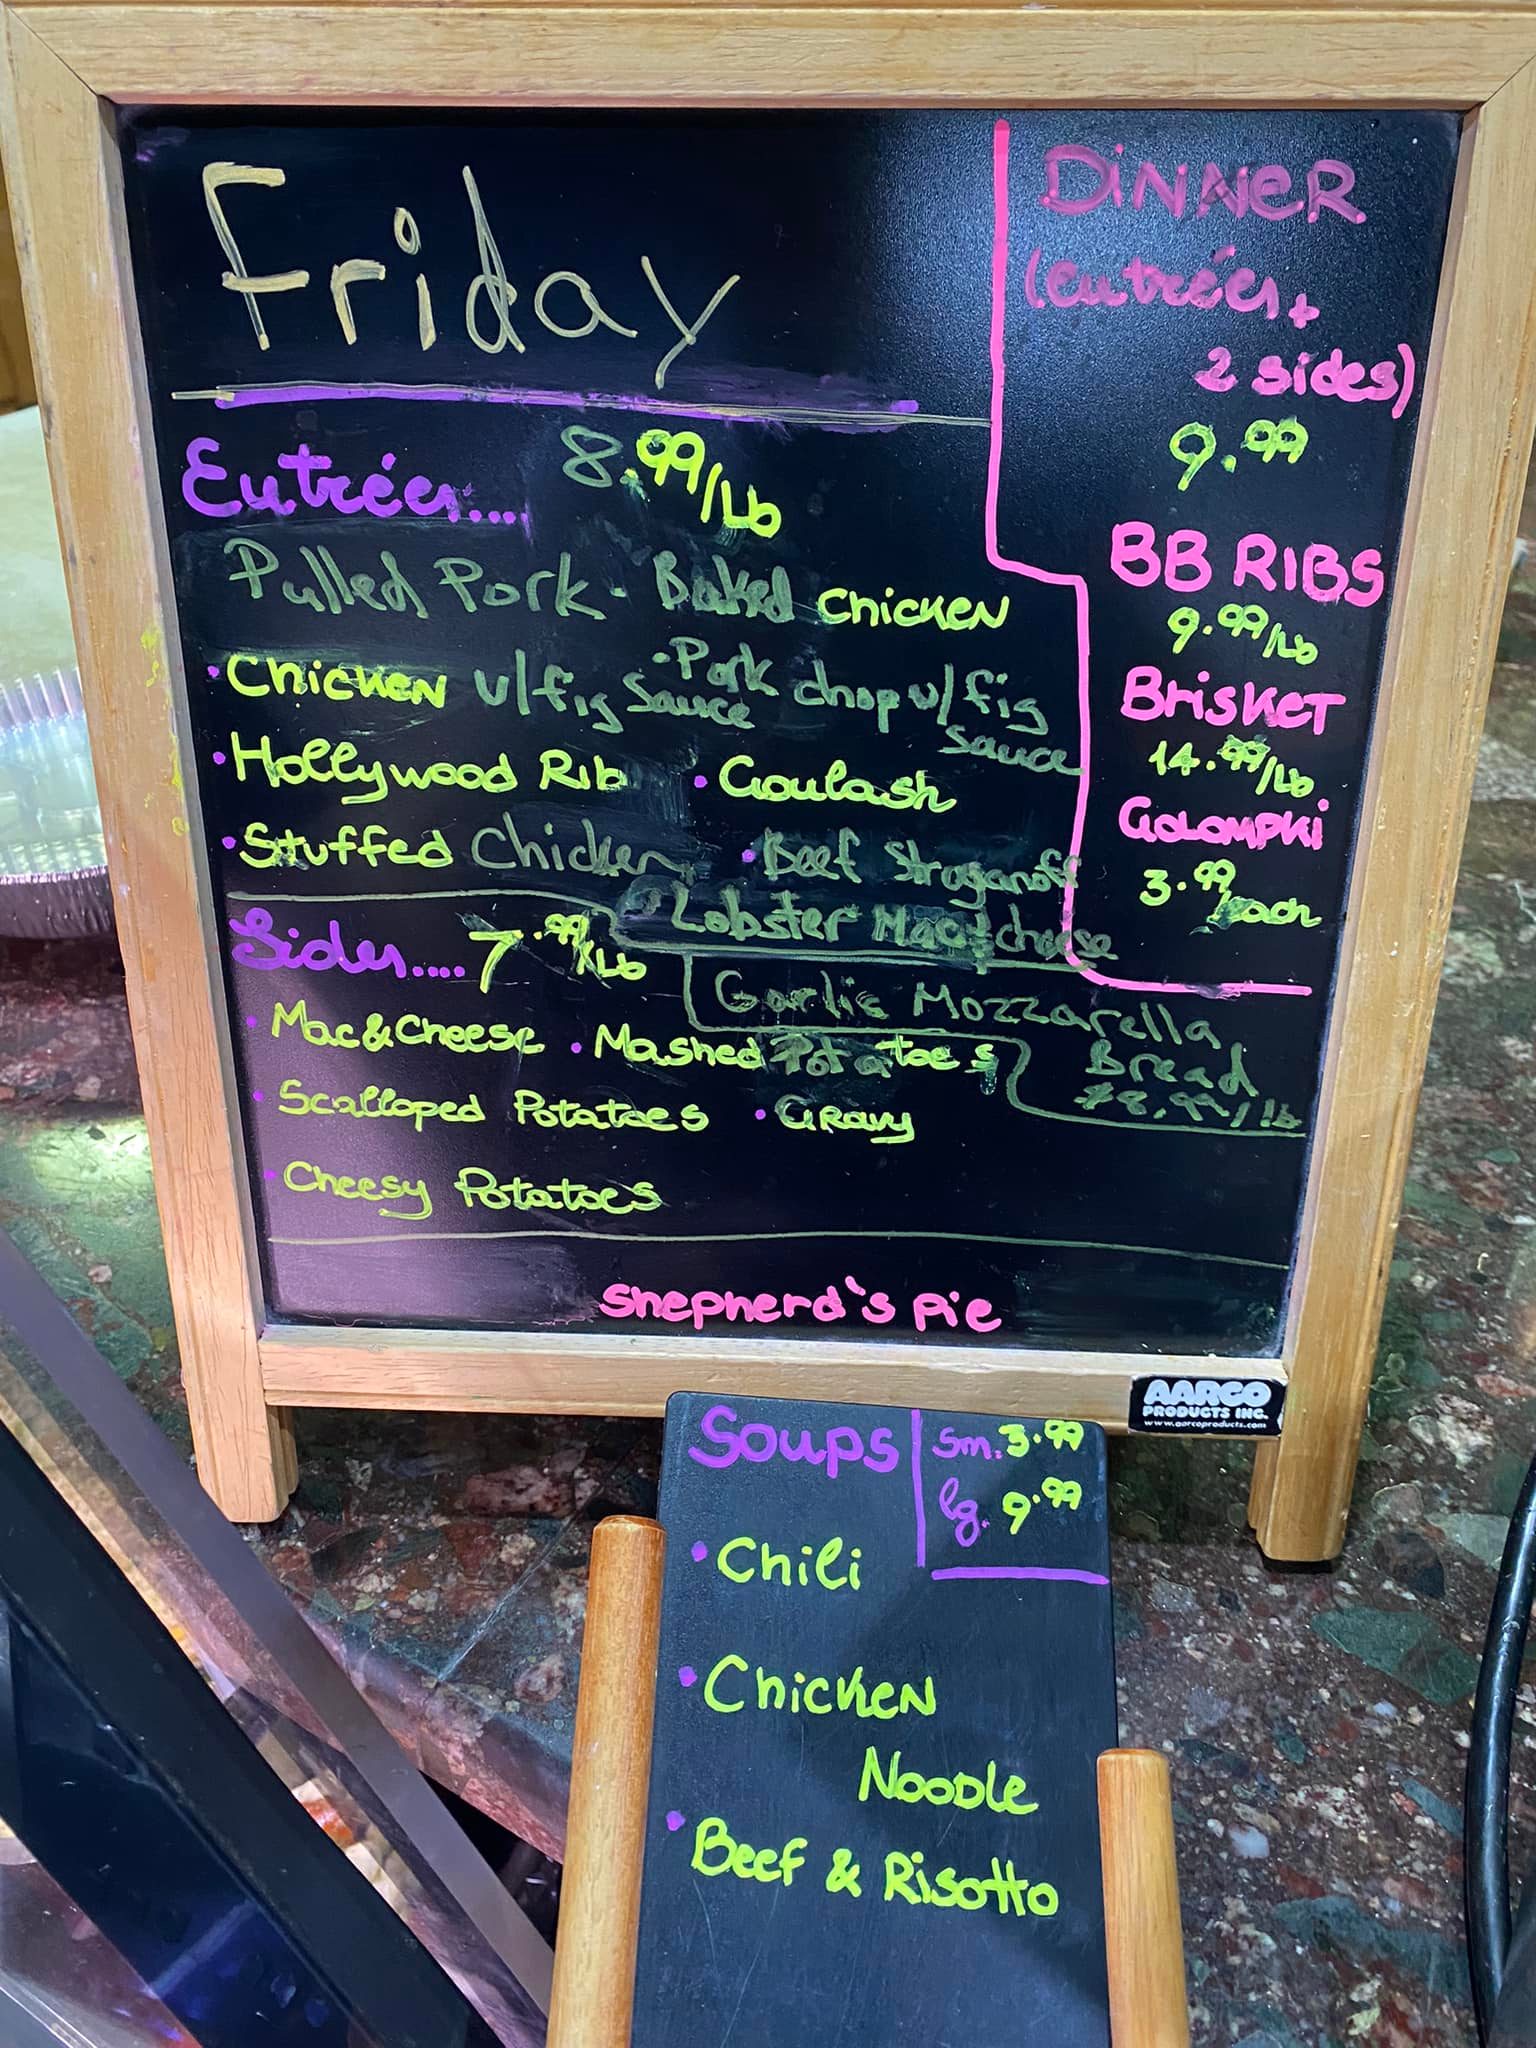 Friday
Entrées.... 8.99/Lb
Pulled Pork · Baked Chicken
· Chicken w/fig sauce · Pork chop w/fig sauce
· Hollywood Rib · Goulash
· Stuffed Chicken · Beef Straganoff
Lobster Mac & cheese
Sides.... 7.99/Lb
Garlic Mozzarella
Bread
$8.99/lb
· Mac & Cheese · Mashed Potatoes
· Scalloped Potatoes · Gravy
· Cheesy Potatoes
Shepherd's Pie
DiNNeR
(entrées +
2 sides)
9.99
BB RIBS
9.99/Lb
BrisKeT
14.99/Lb
Golompki
3.99/each
AARCO
PRODUCTS INC.
www.aarcoproducts.com
Soups
Sm. 3.99
lg. 9.99
· Chili
· Chicken
Noodle
· Beef & Risotto